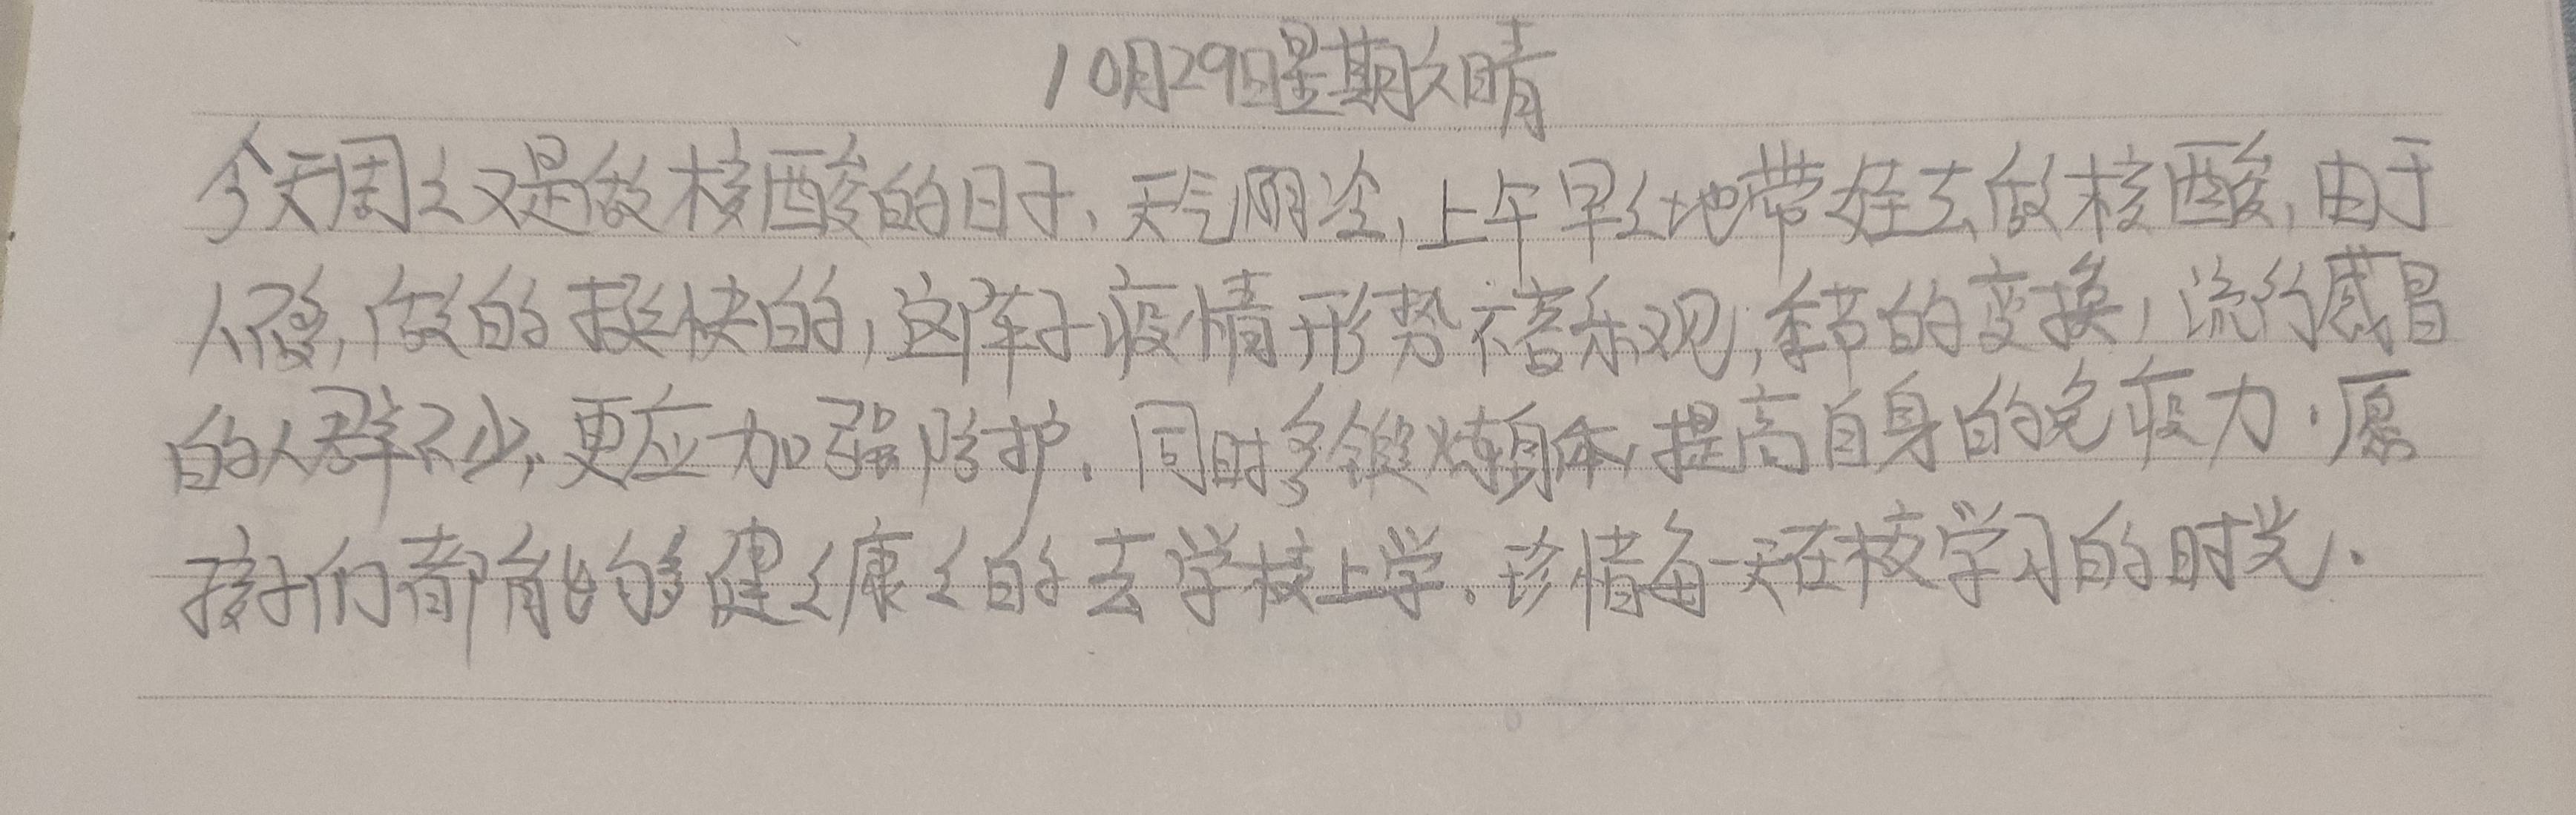 10月29日星期六晴
今天周六又是做核酸的日子、天气阴冷,上午早々地带娃去做核酸,由于
人,做的挺快的,这阵子疫情形势不容乐观,季节的变换,流行感冒
的人群不少,更应加强防护.同时多锻炼身体,提高自身的免疫力.愿
孩子们都能够健々康々的去学校上学.珍惜每一天在校学习的时光.